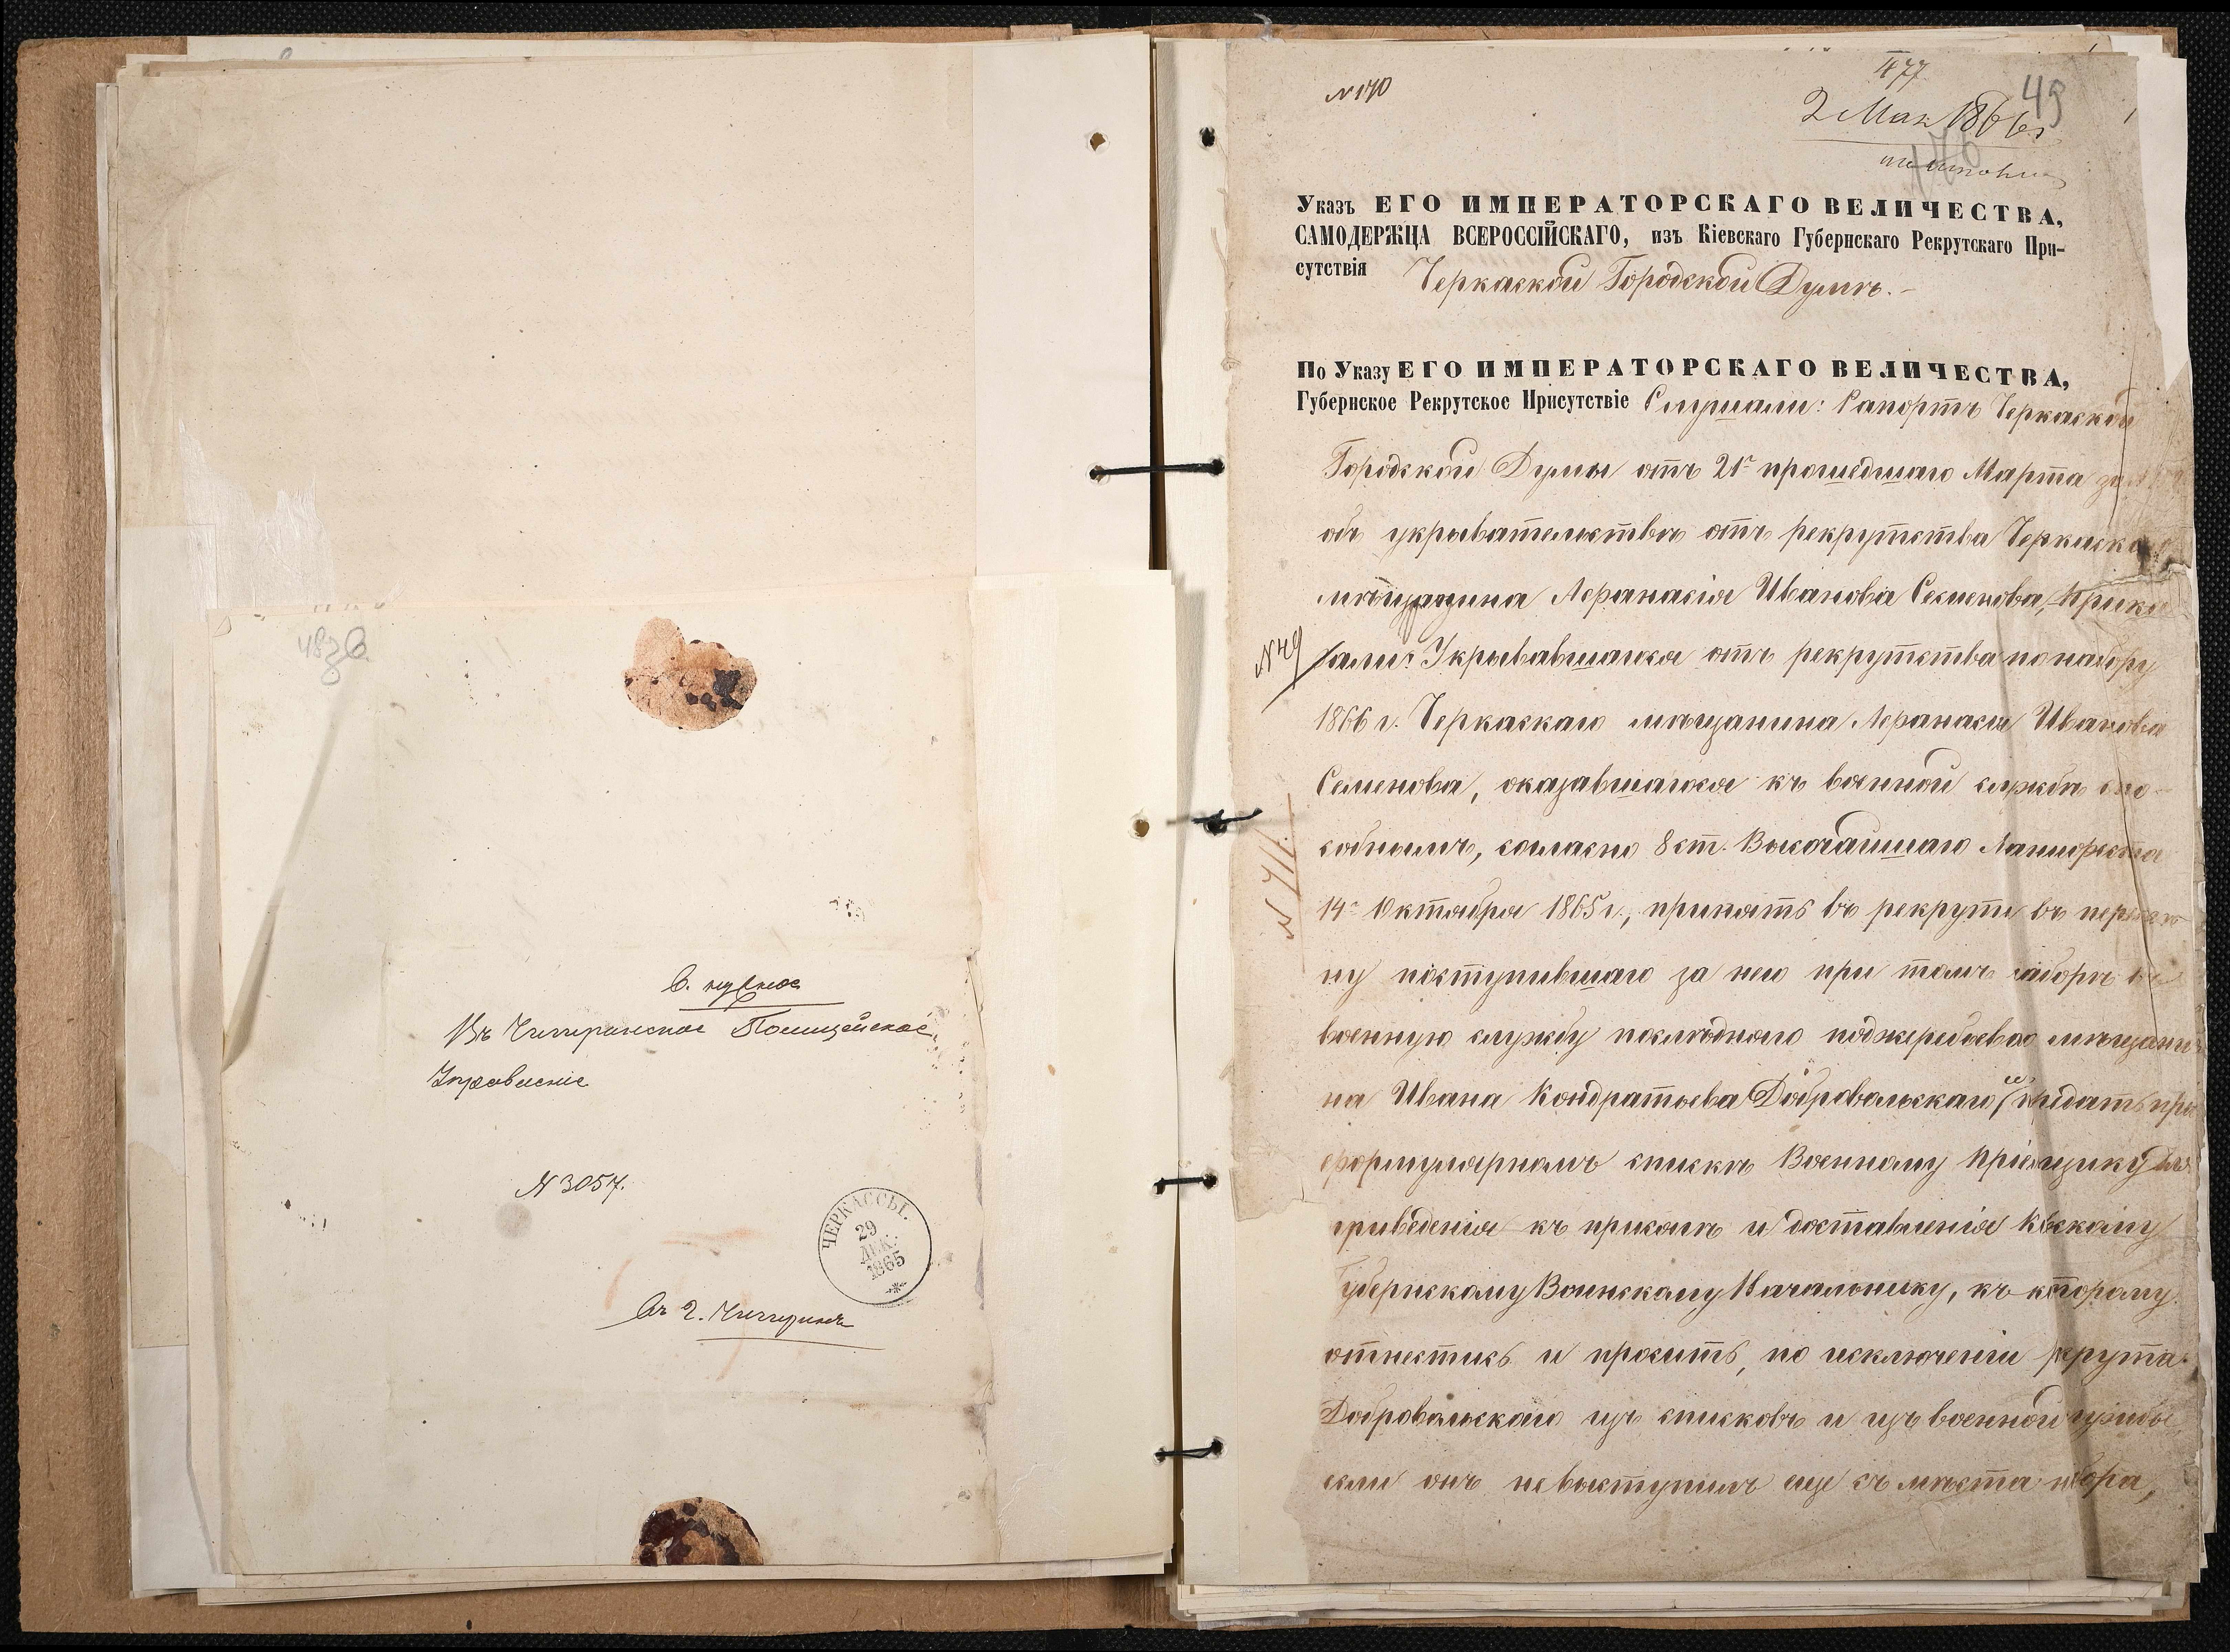 48 зв
В. нужное
Въ Чигиринское Полицейское
Управленіе
№ 3057.
ЧЕРКАССЫ.
29
ДЕК.
1865
Въ г. Чигиринъ
№ 170
477
49
2 Мая 1866 г.
Указъ ЕГО ИМПЕРАТОРСКАГО ВЕЛИЧЕСТВА,
САМОДЕРЖЦА ВСЕРОССІЙСКАГО, изъ Кіевскаго Губернскаго Рекрутскаго При-
сутствія Черкаской Городской Думѣ.-
По Указу ЕГО ИМПЕРАТОРСКАГО ВЕЛИЧЕСТВА,
Губернское Рекрутское Присутствіе Слушали: Рапортъ Черкаской
Городской Думы отъ 21го прошедшаго Марта за
объ укрывательствѣ отъ рекрутства Черкаскаго
мѣщанина Афанасія Иванова Семенова, Прика
№ 49
зали: Укрывавшагося отъ рекрутства по набору
1866 г. Черкаскаго мѣщанина Афанасія Иванова
Семенова, оказавшагося къ военной службѣ спо-
собнымъ, согласно 8 ст. Высочайшаго Манифеста
№ 711.
14го Октября 1865 г., принять въ рекруты въ перемѣ
ну поступившаго за него при томъ наборѣ въ
военную службу послѣдняго поджеребьеваго мѣщани
на Ивана Кондратьева Добровольскаго и предать при
формулярномъ спискѣ Военному Пріемщику для
приведенія къ присягѣ и доставленія Кіевскому
Губернскому Воинскому Начальнику, къ которому
отнестись и просить, по исключеніи рекрута
Добровольскаго изъ списковъ и изъ военной службы
если онъ невыступилъ еще съ мѣста набора,